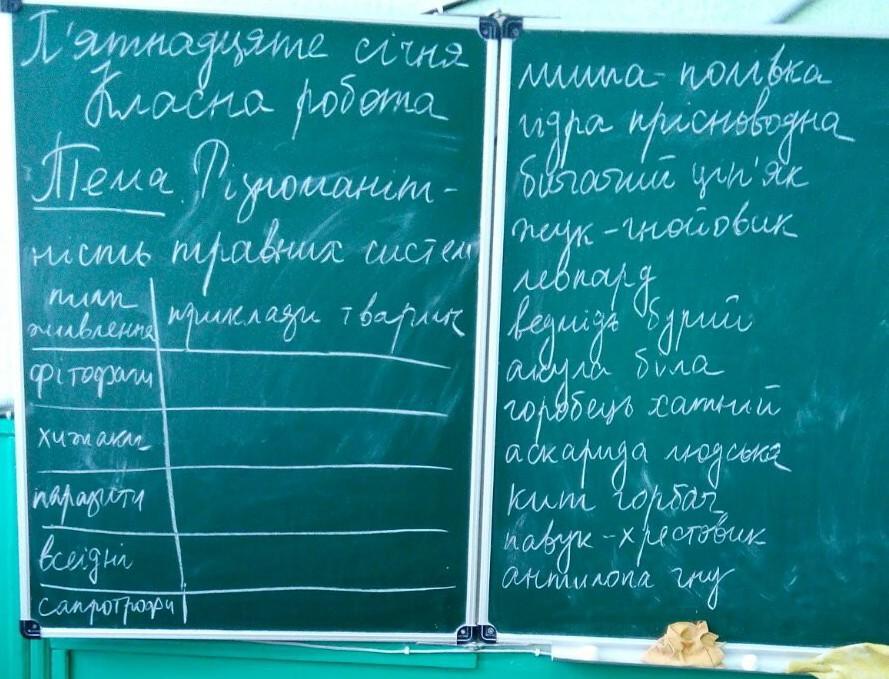 П'ятнадцяте січня
Класна робота
Тема. Різноманіт-
ність травних систем
типи
живлення
приклади тварин
фітофаги
хижаки
паразити
всеїдні
сапротрофи
миша-полівка
гідра прісноводна
бичачий ціп'як
жук-гнойовик
леопард
ведмідь бурий
акула біла
горобець хатній
аскарида людська
кит горбач
павук-хрестовик
антилопа гну